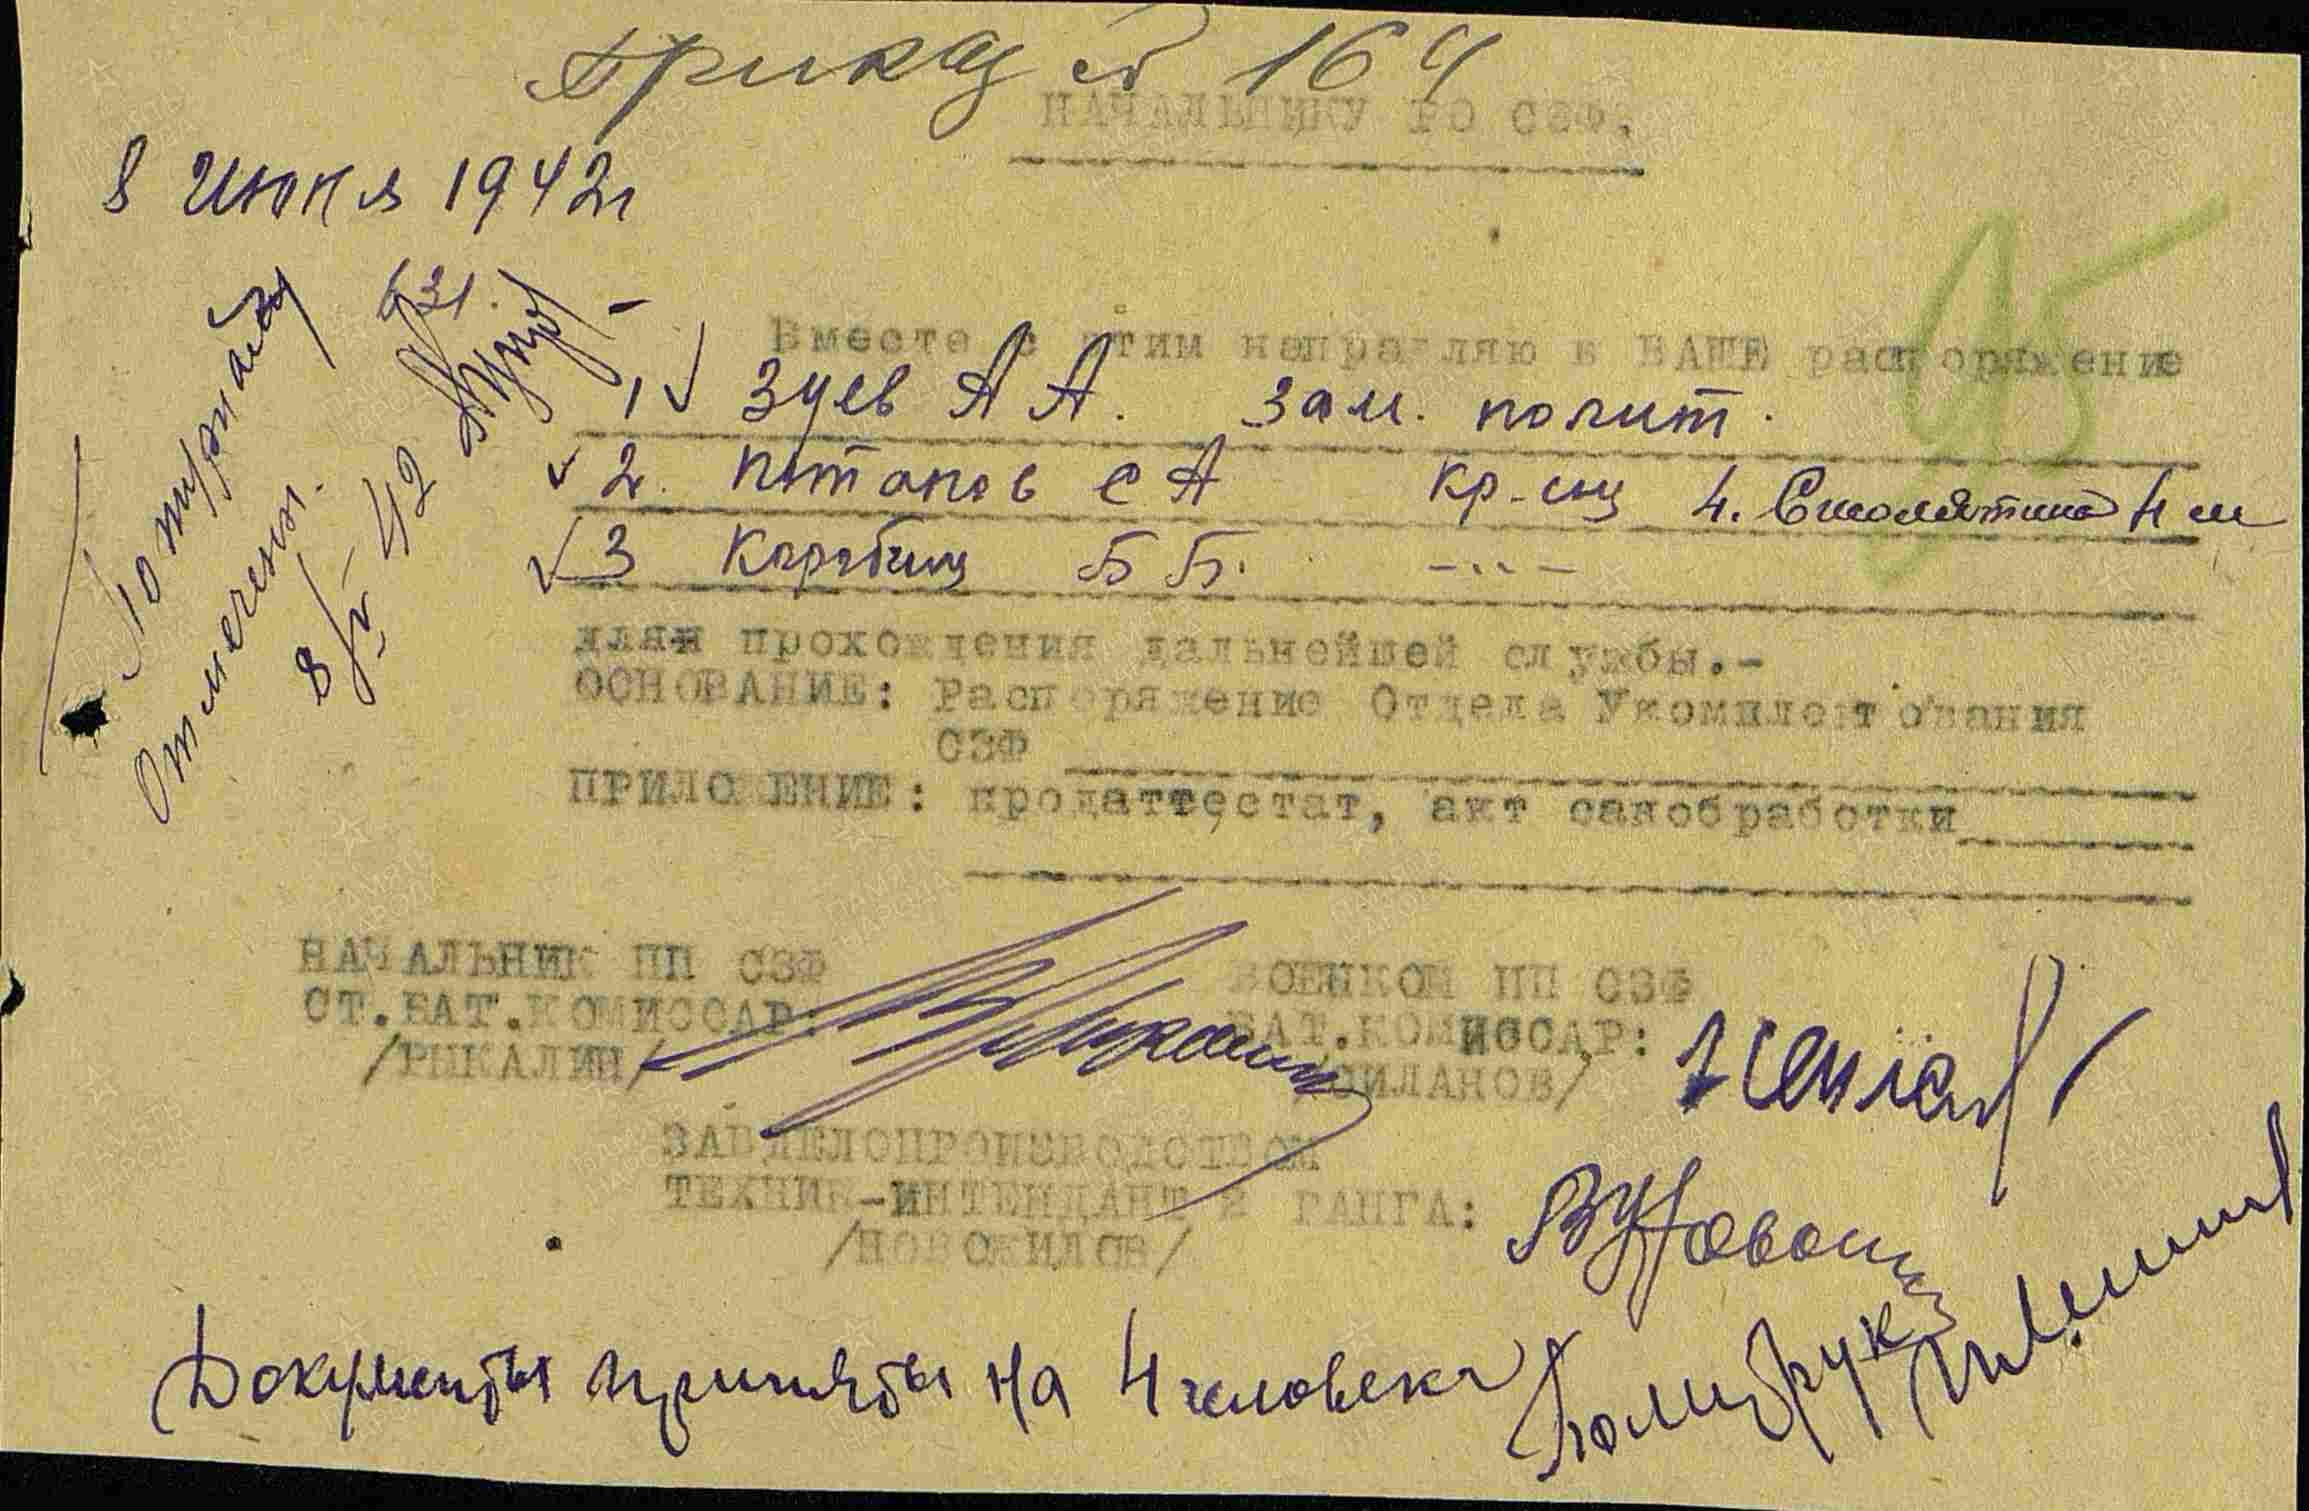 Приказ № 164
НАЧАЛЬНИКУ РО СЗФ.
8 июня 1942г
631.
Вместе с этим направляю в ВАШЕ распоряжение
1 Зуев А А. зам. полит.
2. Потапов С А кр-ец 4.
3 Карабин Б Б. -..-
для прохождения дальнейшей службы.-
ОСНОВАНИЕ: Распоряжение Отдела Укомплектования
СЗФ
ПРИЛОЖЕНИЕ: продаттестат, акт санобработки
НАЧАЛЬНИК ПП СЗФ
СТ.БАТ.КОМИССАР:
/РЫКАЛИН/
ВОЕНКОМ ПП СЗФ
БАТ.КОМИССАР:
/СИЛАНОВ/
ЗАВДЕЛОПРОИЗВОДСТВОМ
ТЕХНИК-ИНТЕНДАНТ 2 РАНГА:
/НОВОЖИЛОВ/
Документы приняты на 4 человека
Политрук
отмечены.
8/V-42
95